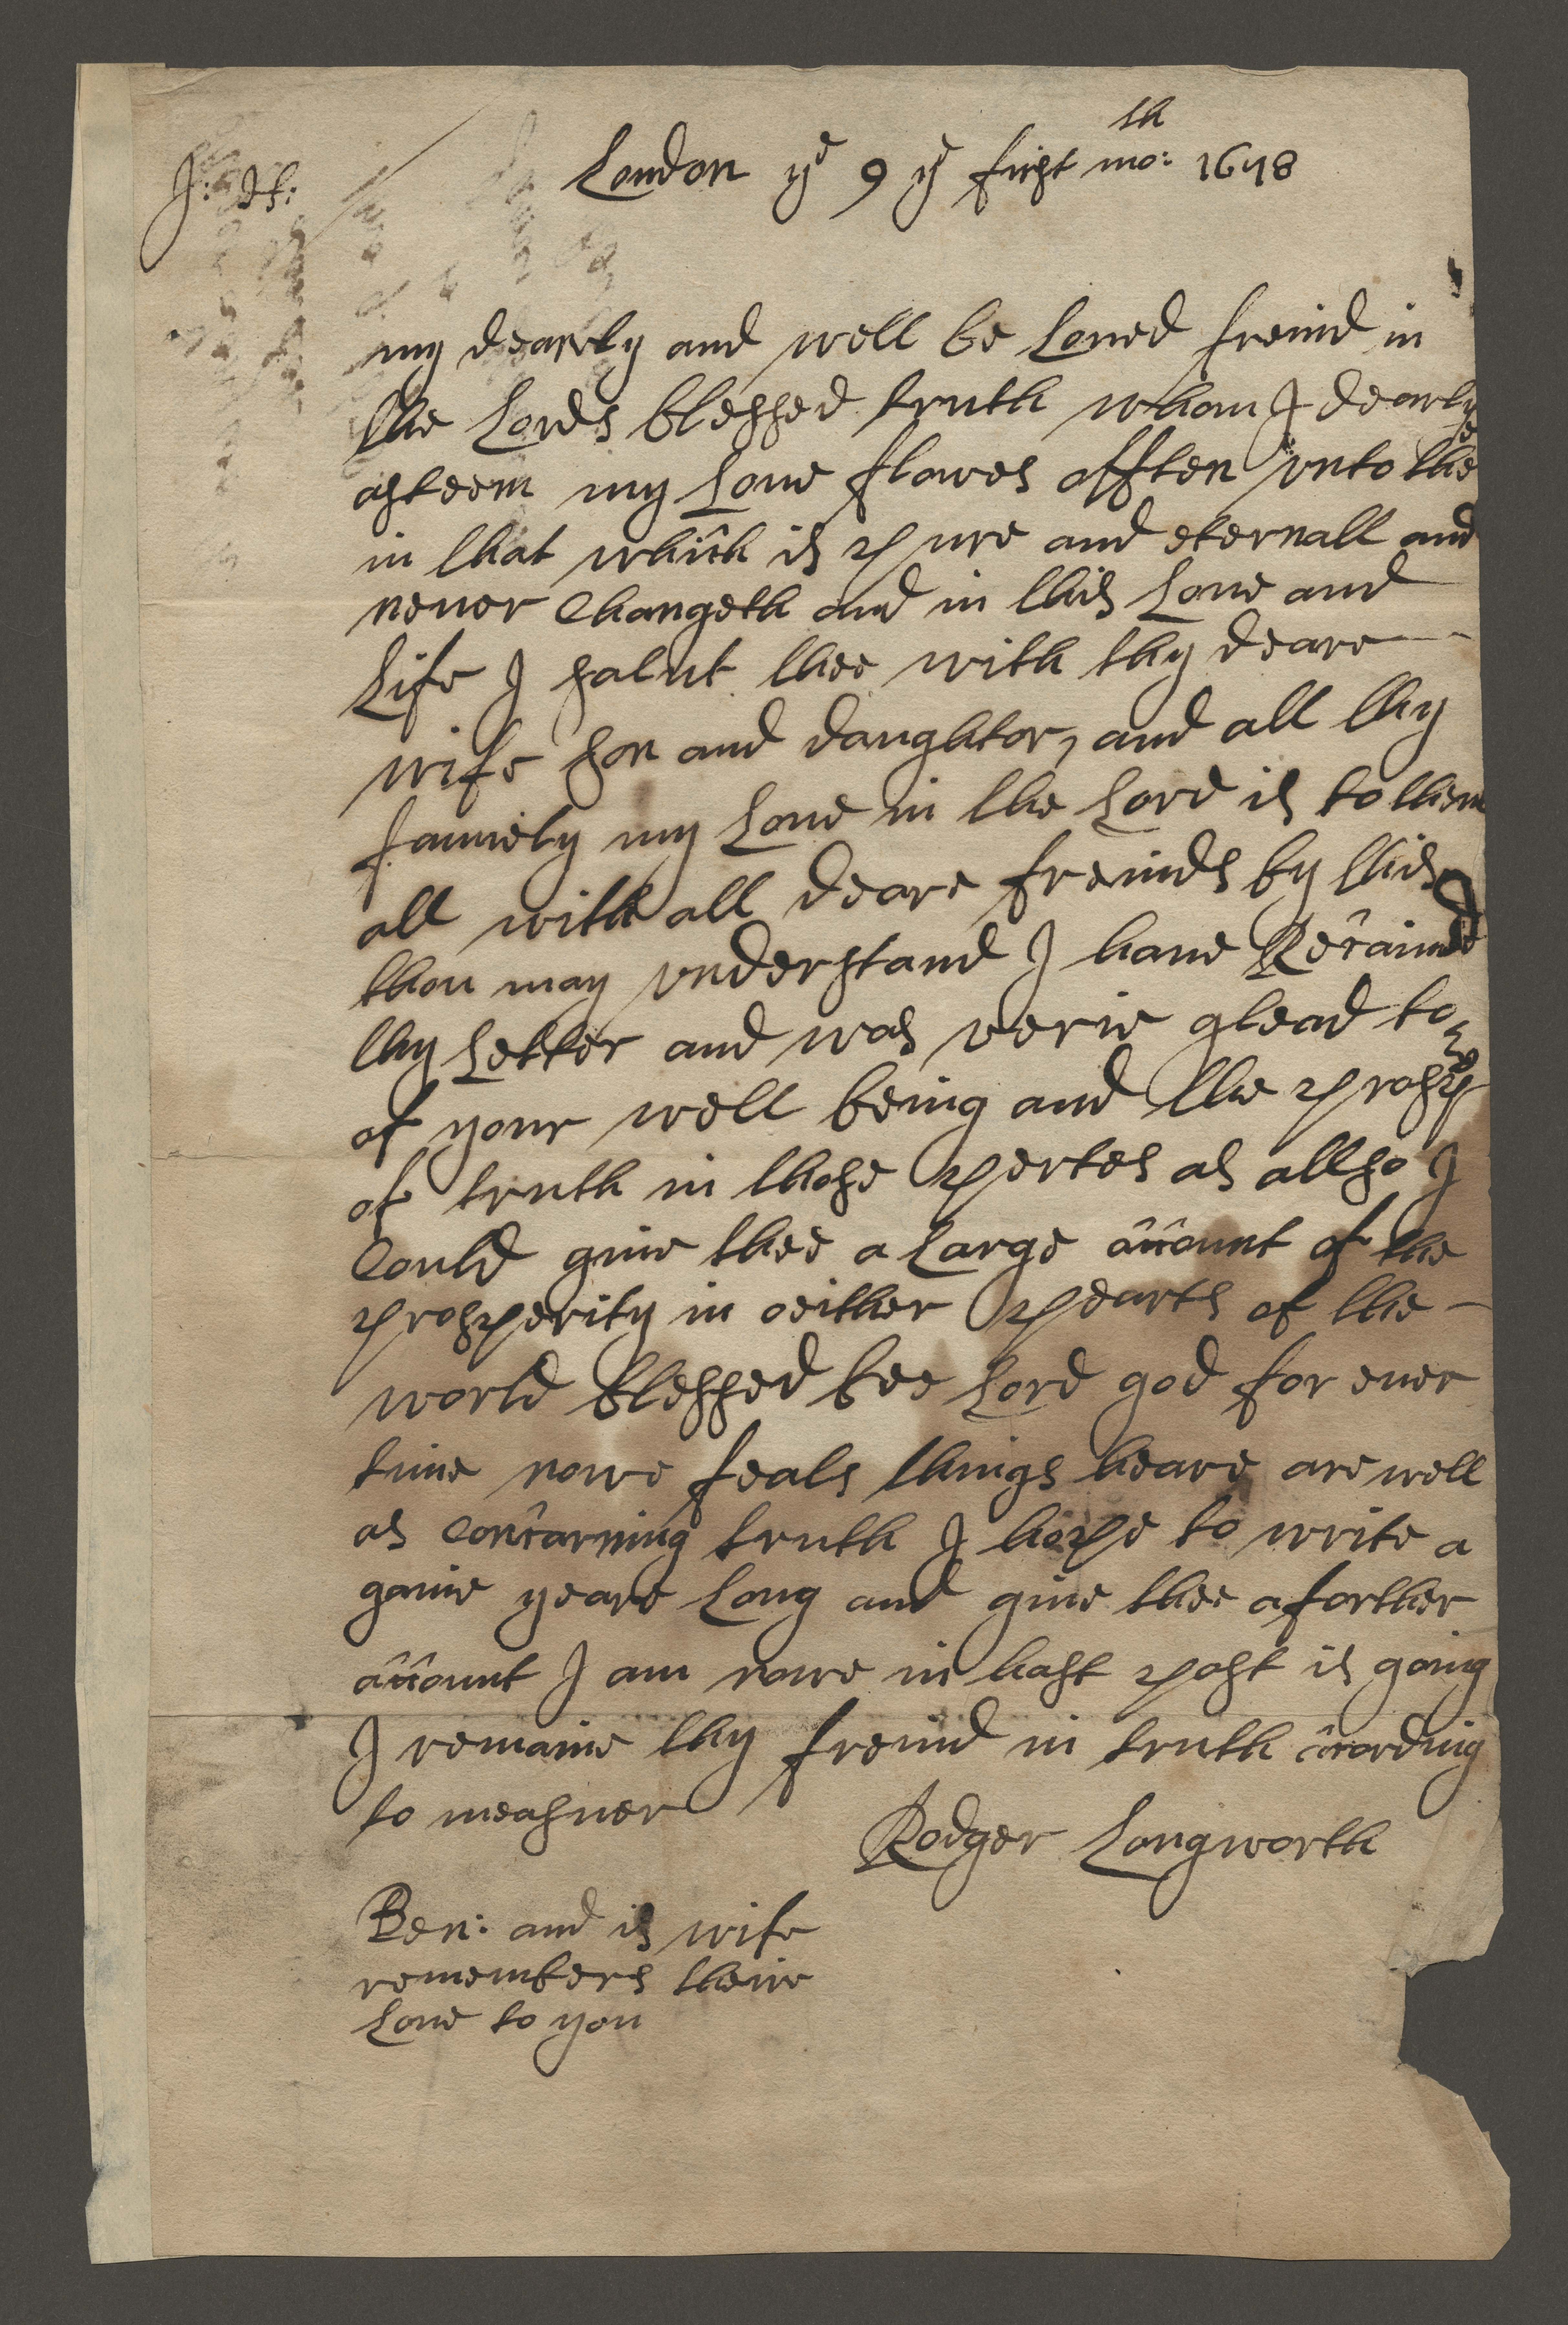 J: ds:
London ye 9 ye first moth: 1678
my dearely and well be Loued freind in
the Lords blessed truth whom I dearly
esteem my Loue flowes offten vnto thee
in that which is pure and eternall and
neuer Changeth and in this Loue and
Life I salut thee with thy deare
wife son and daughter, and all thy
famiely my Loue in the Lord is to them
all with all deare freinds by this
thou may vnderstand I haue Recaiued
thy Letter and was verie glead to
of your well being and the prosp
of truth in those pertes as allso I
Could giue thee a Large account of the
prosperity in oeither pearts of the
world blessed bee Lord god for euer
time nowe feals things heare are well
as Concarning truth I hope to write a
gaine yeare Long and giue thee a forther
account I am nowe in hast post is going
I remaine thy freind in truth cording
to measuer
Rodger Longworth
Ben: and is wife
remembers theire
Loue to you